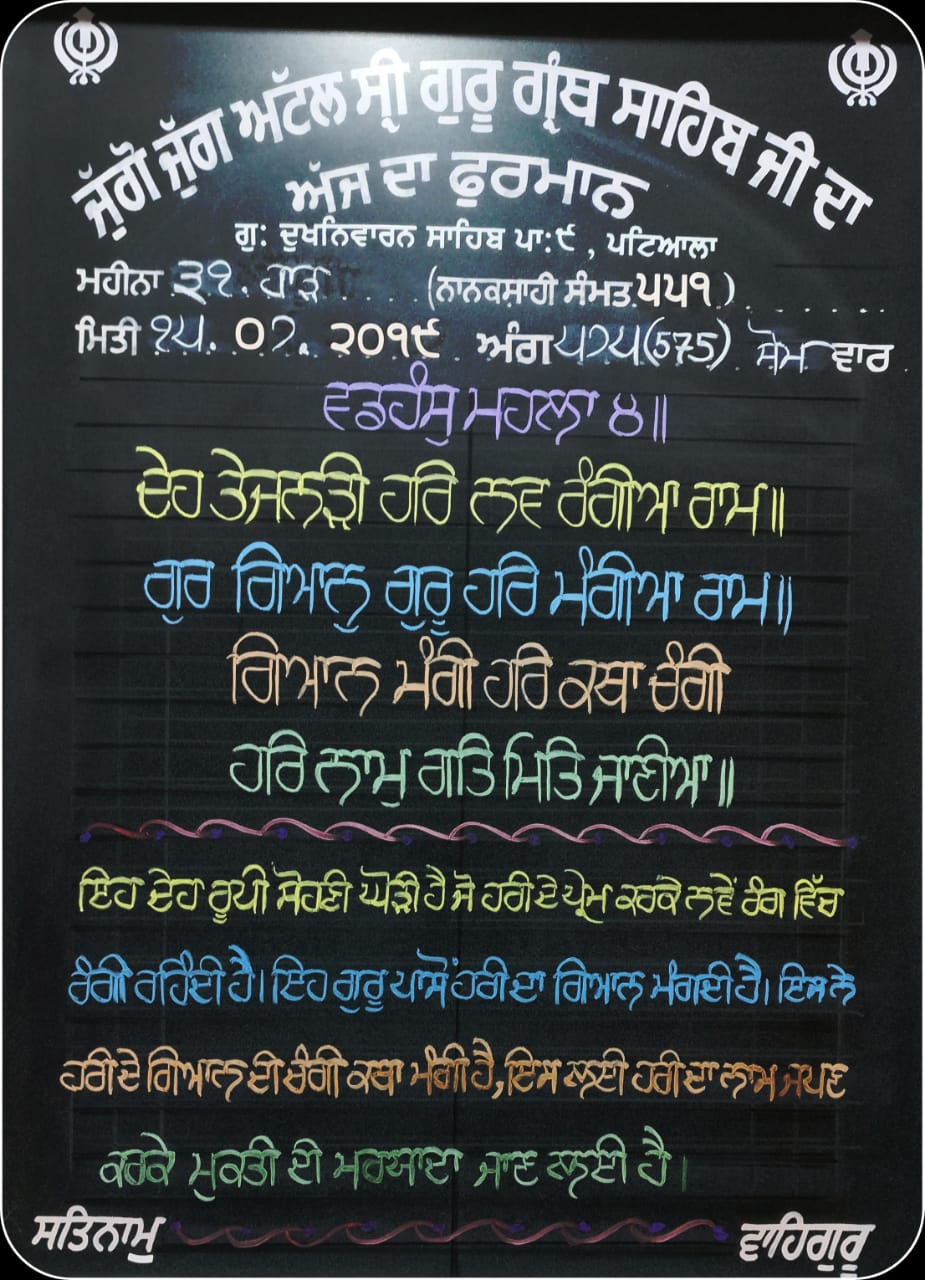 ਜੁੱਗੋ ਜੁੱਗ ਅਟੱਲ ਸ੍ਰੀ ਗੁਰੂ ਗ੍ਰੰਥ ਸਾਹਿਬ ਜੀ ਦਾ
ਅੱਜ ਦਾ ਫੁਰਮਾਨ
ਗੁ: ਦੁਖਨਿਵਾਰਨ ਸਾਹਿਬ ਪਾ:੯ , ਪਟਿਆਲਾ
ਮਹੀਨਾ ੩੧ ਹਾੜ (ਨਾਨਕਸਾਹੀ ਸੰਮਤ ੫੫੧)
ਮਿਤੀ ੧੫. ੦੭. ੨੦੧੯ ਅੰਗ ੫੭੫(575) ਸੋਮ ਵਾਰ
ਵਡਹੰਸੁ ਮਹਲਾ ੪॥
ਦੇਹ ਤੇਜਨੜੀ ਹਰਿ ਨਵ ਰੰਗੀਆ ਰਾਮ॥
ਗੁਰ ਗਿਆਨੁ ਗੁਰੂ ਹਰਿ ਮੰਗੀਆ ਰਾਮ॥
ਗਿਆਨ ਮੰਗੀ ਹਰਿ ਕਥਾ ਚੰਗੀ
ਹਰਿ ਨਾਮੁ ਗਤਿ ਮਿਤਿ ਜਾਣੀਆ॥
ਇਹ ਦੇਹ ਰੂਪੀ ਸੋਹਣੀ ਘੋੜੀ ਹੈ ਜੋ ਹਰੀ ਦੇ ਪ੍ਰੇਮ ਕਰਕੇ ਨਵੇਂ ਰੰਗ ਵਿੱਚ
ਰੰਗੀ ਰਹਿੰਦੀ ਹੈ। ਇਹ ਗੁਰੂ ਪਾਸੋਂ ਹਰੀ ਦਾ ਗਿਆਨ ਮੰਗਦੀ ਹੈ। ਇਸ ਨੇ
ਹਰੀ ਦੇ ਗਿਆਨ ਦੀ ਚੰਗੀ ਕਥਾ ਮੰਗੀ ਹੈ, ਇਸ ਲਈ ਹਰੀ ਦਾ ਨਾਮ ਜਪਣ
ਕਰਕੇ ਮੁਕਤੀ ਦੀ ਮਰਯਾਦਾ ਜਾਣ ਲਈ ਹੈ।
ਸਤਿਨਾਮੁ ਵਾਹਿਗੁਰੂ